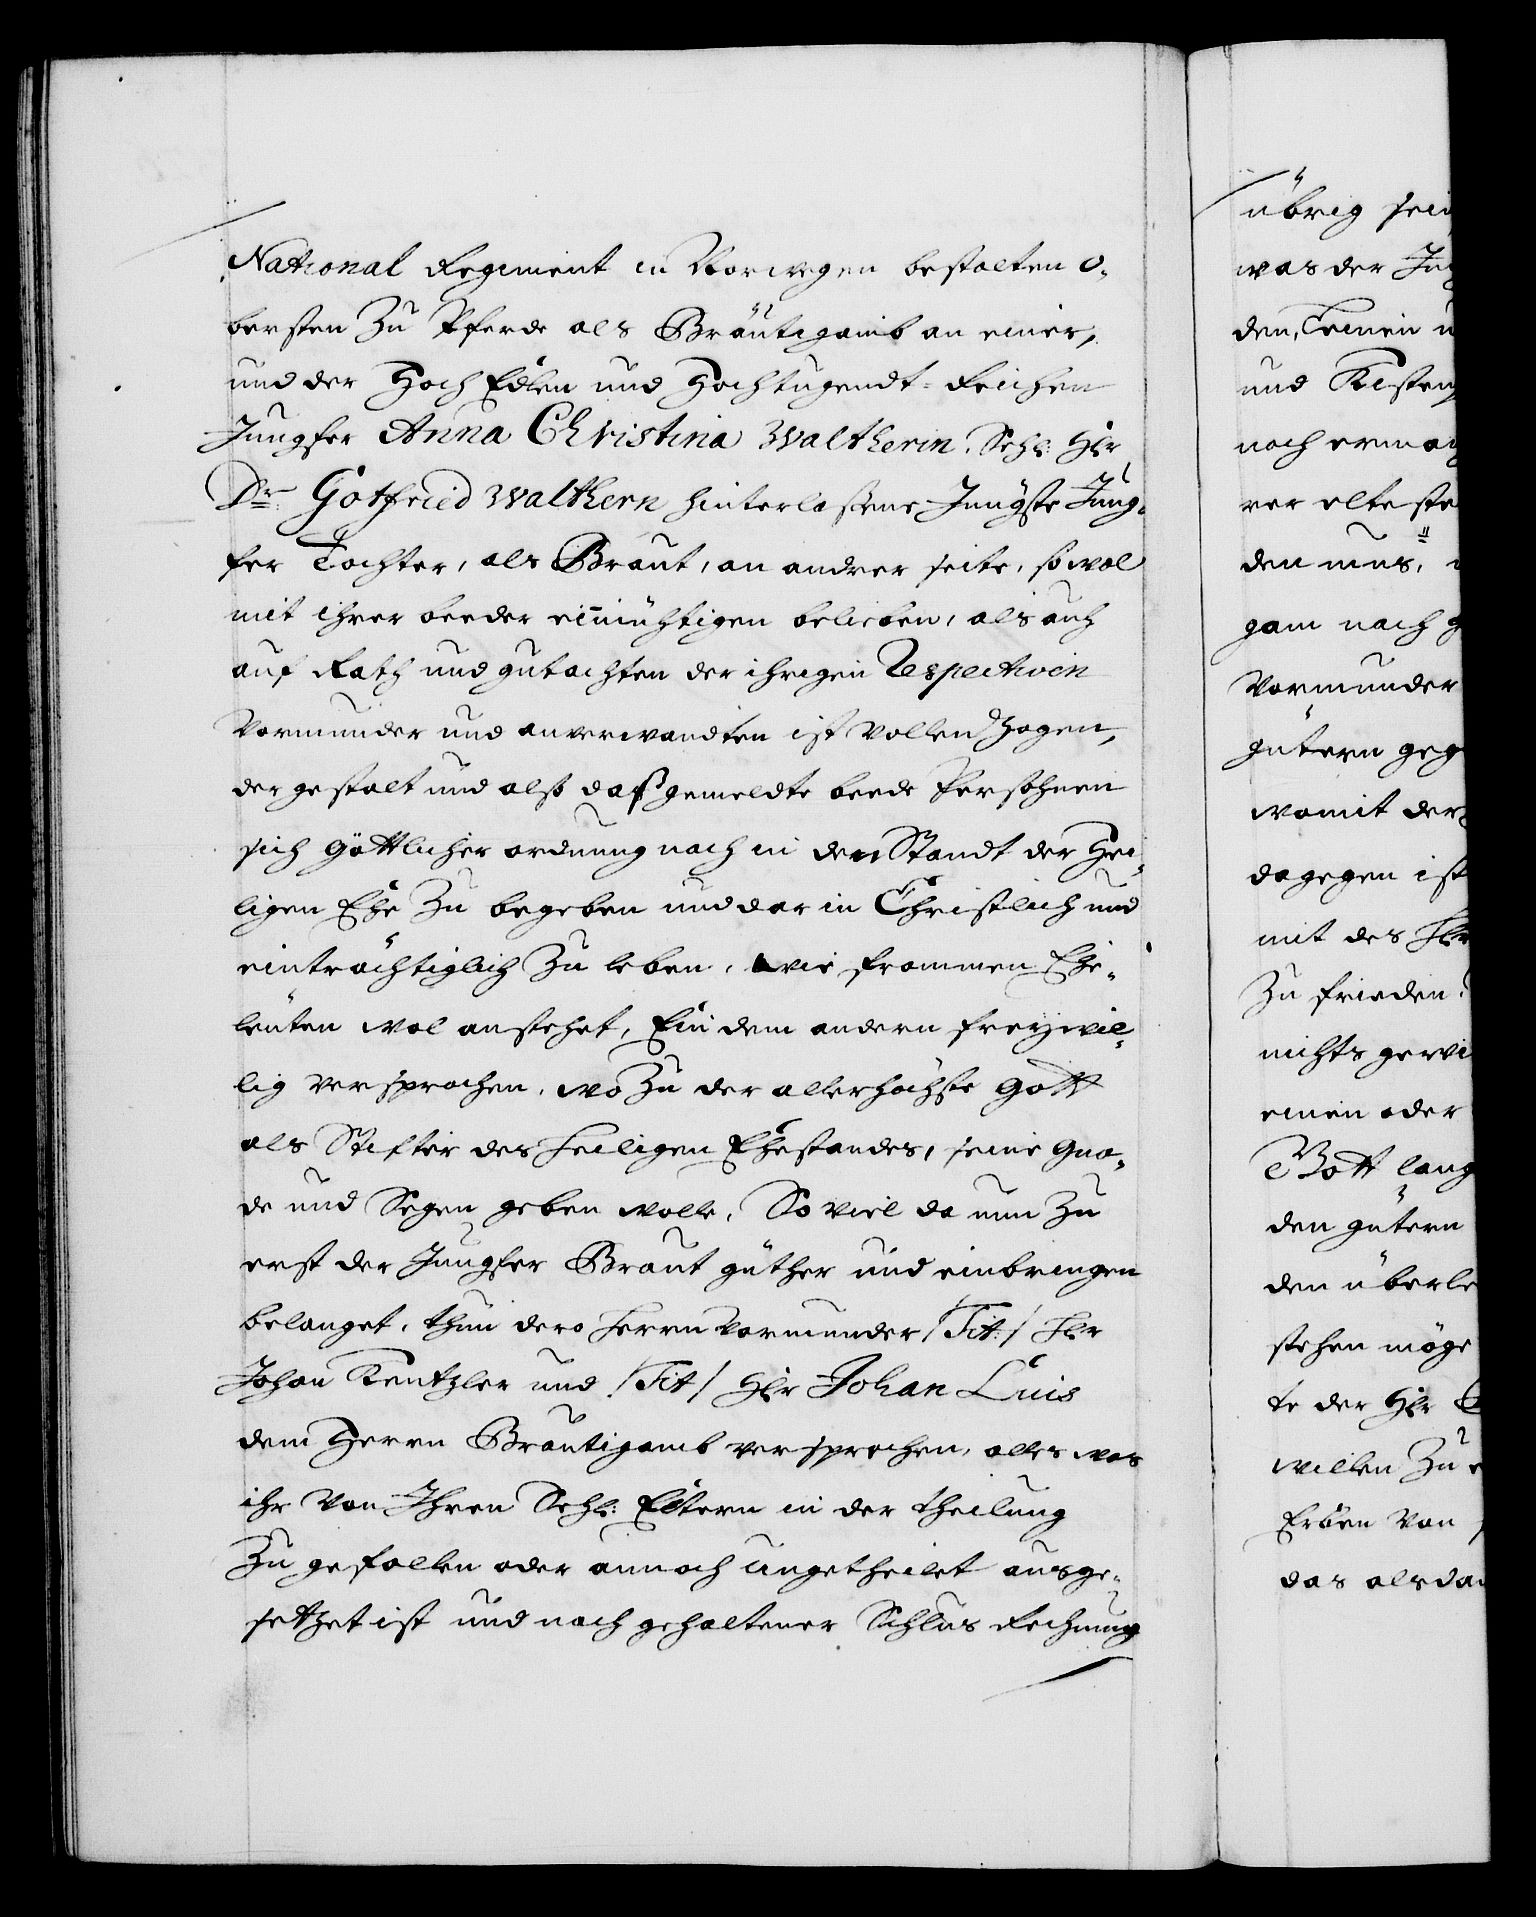 National Regiment in Norwegen bestalten O-
bersten Zu Pferde als Bräutigamb an einer,
und der Hoch Edlen und Hochtugendt-Reichen
Jungfer Anna Christina Waltherin, Sehl: Hr
Dr: Gotfried Walthern hinterlaßene Jüngste Jung-
fer Tochter, als Braut, an andrer seite, so wol
mit ihrer beeder einmühtigen belieben, als auch
auf Rath und gutachten der ihrigen Respectiven
Vormunder und anverwandten ist vollendzogen,
der gestalt und alß daß gemeldte beede Persohnen
sich Göttlicher ordnung nach in den Standt der Hei-
ligen Ehe Zu begeben und dar in Christlich und
einträchtiglich Zu leben, wie frommen Ehe-
leuten wol anstehet, Ein dem andern freywil-
lig versprochen, wo Zu der allerhöchste Gott
als Stifter des heiligen Ehestandes, seine Gna-
de und Segen geben wolle, So viel da nun Zu
erst der Jungfer Braut güther und einbringen
belanget, thun dero Herrn Vormunder /Tit:/ Hr
Johan Kentzler und /Tit/ Hr Johan Luis
dem Herrn Bräutigamb versprochen, alles was
ihr Von Ihren Sehl: Eltern in der theilung
Zu gefallen oder annoch ungetheilet ausge-
setzet ist und nach gehaltener Schlus Rechnung
übrig sein
was der Jung
den, Leinen u
und Kisten
noch ermang
rer elteste
den mus,
gam nach g
Vormunder
gütern geg
womit der
dagegen ist
mit des Hr
Zu frieden,
nichts gewi
einen oder
Gott lang
den gütern
den überle
stehen möge
te der Hr
willen Zu
Erben Von
das alsdan